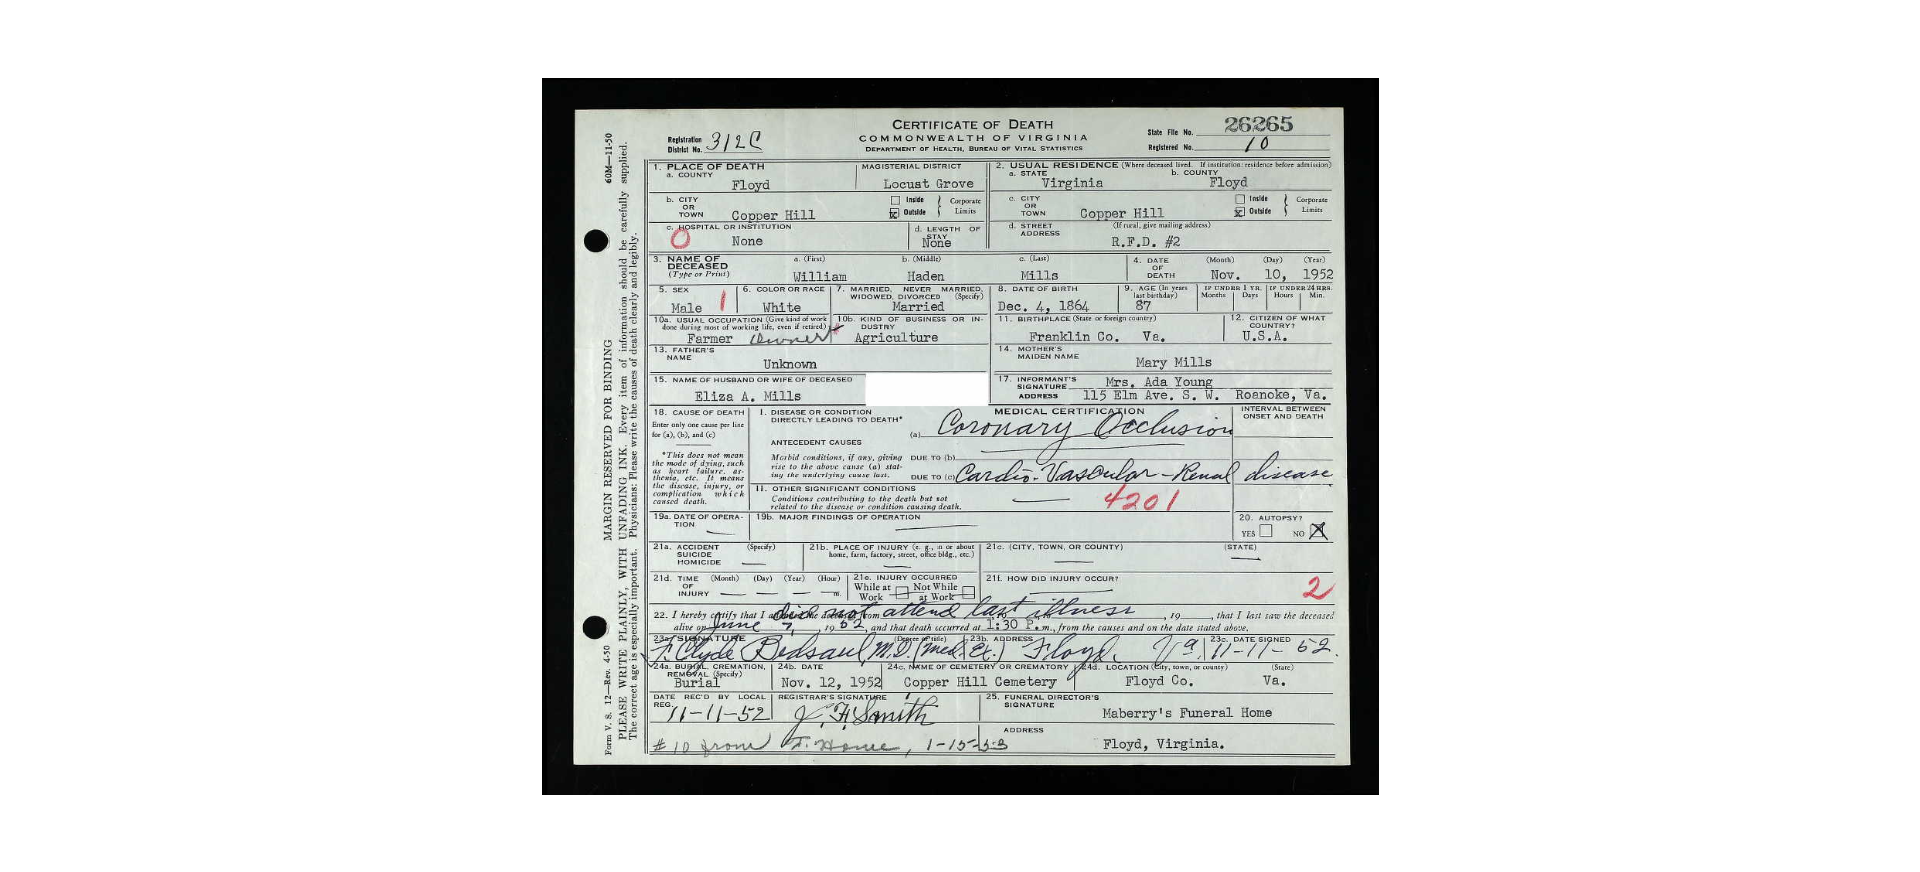 CERTIFICATE OF DEATH
COMMONWEALTH OF VIRGINIA
DEPARTMENT OF HEALTH, BUREAU OF VITAL STATISTICS
Registration District No. 312C
State File No. 26265
Registered No. 10
1. PLACE OF DEATH
a. COUNTY Floyd
MAGISTERIAL DISTRICT Locust Grove
2. USUAL RESIDENCE (Where deceased lived. If institution: residence before admission)
a. STATE Virginia b. COUNTY Floyd
b. CITY OR TOWN Copper Hill Inside Outside Corporate Limits
c. CITY OR TOWN Copper Hill Inside Outside Corporate Limits
c. HOSPITAL OR INSTITUTION None 0
d. LENGTH OF STAY None
d. STREET ADDRESS (If rural, give mailing address) R.F.D. #2
3. NAME OF DECEASED (Type or Print) a. (First) William b. (Middle) Haden c. (Last) Mills
4. DATE OF DEATH (Month) (Day) (Year) Nov. 10, 1952
5. SEX Male 1
6. COLOR OR RACE White
7. MARRIED, NEVER MARRIED, WIDOWED, DIVORCED (Specify) Married
8. DATE OF BIRTH Dec. 4, 1864
9. AGE (In years last birthday) 87
IF UNDER 1 YR. Months Days
IF UNDER 24 HRS. Hours Min.
10a. USUAL OCCUPATION (Give kind of work done during most of working life, even if retired) Farmer Owner
10b. KIND OF BUSINESS OR INDUSTRY Agriculture
11. BIRTHPLACE (State or foreign country) Franklin Co. Va.
12. CITIZEN OF WHAT COUNTRY? U.S.A.
13. FATHER'S NAME Unknown
14. MOTHER'S MAIDEN NAME Mary Mills
15. NAME OF HUSBAND OR WIFE OF DECEASED Eliza A. Mills
17. INFORMANT'S SIGNATURE Mrs. Ada Young
ADDRESS 115 Elm Ave. S. W. Roanoke, Va.
18. CAUSE OF DEATH
Enter only one cause per line for (a), (b), and (c)
*This does not mean the mode of dying, such as heart failure, asthenia, etc. It means the disease, injury, or complication which caused death.
MEDICAL CERTIFICATION
INTERVAL BETWEEN ONSET AND DEATH
I. DISEASE OR CONDITION DIRECTLY LEADING TO DEATH* (a) Coronary Occlusion
ANTECEDENT CAUSES
Morbid conditions, if any, giving rise to the above cause (a) stating the underlying cause last.
DUE TO (b)
DUE TO (c) Cardio-Vascular-Renal disease
II. OTHER SIGNIFICANT CONDITIONS
Conditions contributing to the death but not related to the disease or condition causing death.
4201
19a. DATE OF OPERATION
19b. MAJOR FINDINGS OF OPERATION
20. AUTOPSY? YES NO X
21a. ACCIDENT SUICIDE HOMICIDE (Specify)
21b. PLACE OF INJURY (e. g., in or about home, farm, factory, street, office bldg., etc.)
21c. (CITY, TOWN, OR COUNTY) (STATE)
21d. TIME OF INJURY (Month) (Day) (Year) (Hour) m.
21e. INJURY OCCURRED While at Work Not While at Work
21f. HOW DID INJURY OCCUR?
2
22. I hereby certify that I attended the deceased from did not attend last illness, 19, that I last saw the deceased
alive on June 7, 1952, and that death occurred at 1:30 P.m., from the causes and on the date stated above.
23a. SIGNATURE (Degree or title) F. Clyde Bedsaul, M.D. (Med. Ex.)
23b. ADDRESS Floyd, Va.
23c. DATE SIGNED 11-11-52.
24a. BURIAL, CREMATION, REMOVAL (Specify) Burial
24b. DATE Nov. 12, 1952
24c. NAME OF CEMETERY OR CREMATORY Copper Hill Cemetery
24d. LOCATION (City, town, or county) (State) Floyd Co. Va.
DATE REC'D BY LOCAL REG. 11-11-52
REGISTRAR'S SIGNATURE J. H. Smith
25. FUNERAL DIRECTOR'S SIGNATURE Maberry's Funeral Home
ADDRESS Floyd, Virginia.
#10 from F. Home, 1-15-53
Form V. S. 12—Rev. 4-50 60M—11-50
MARGIN RESERVED FOR BINDING
PLEASE WRITE PLAINLY, WITH UNFADING INK. Every item of information should be carefully supplied.
The correct age is especially important. Physicians: Please write the causes of death clearly and legibly.